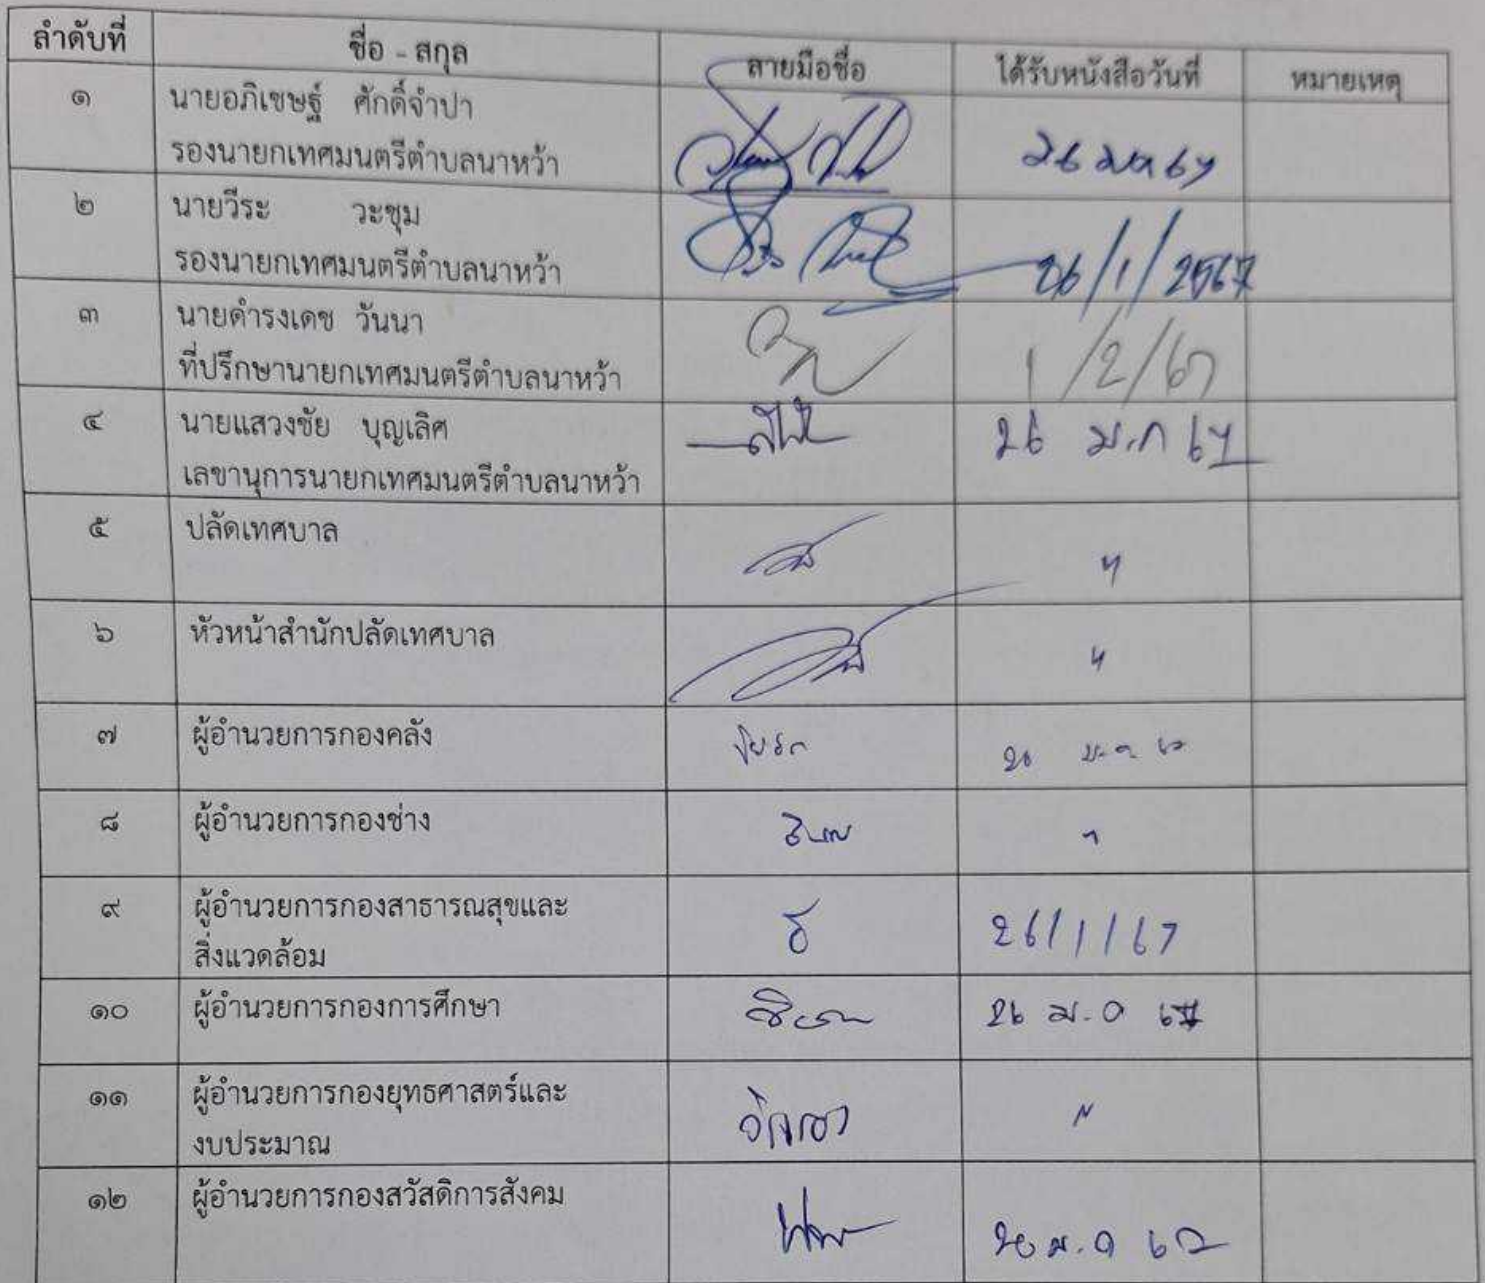 ลำดับที่ ชื่อ - สกุล ลายมือชื่อ ได้รับหนังสือวันที่ หมายเหตุ
๑ นายอภิเชษฐ์ ศักดิ์จำปา
รองนายกเทศมนตรีตำบลนาหว้า 26 มค 67
๒ นายวีระ วะชุม
รองนายกเทศมนตรีตำบลนาหว้า 26/1/2567
๓ นายดำรงเดช วันนา
ที่ปรึกษานายกเทศมนตรีตำบลนาหว้า 1/2/67
๔ นายแสวงชัย บุญเลิศ 26 ม.ค 67
เลขานุการนายกเทศมนตรีตำบลนาหว้า
๕ ปลัดเทศบาล
"
๖ หัวหน้าสำนักปลัดเทศบาล
"
๗ ผู้อำนวยการกองคลัง
26 ม.ค. 67
๘ ผู้อำนวยการกองช่าง "
๙ ผู้อำนวยการกองสาธารณสุขและ
สิ่งแวดล้อม 26/1/67
๑๐ ผู้อำนวยการกองการศึกษา 26 ม.ค 67
๑๑ ผู้อำนวยการกองยุทธศาสตร์และ "
งบประมาณ
๑๒ ผู้อำนวยการกองสวัสดิการสังคม
26 ม.ค 67